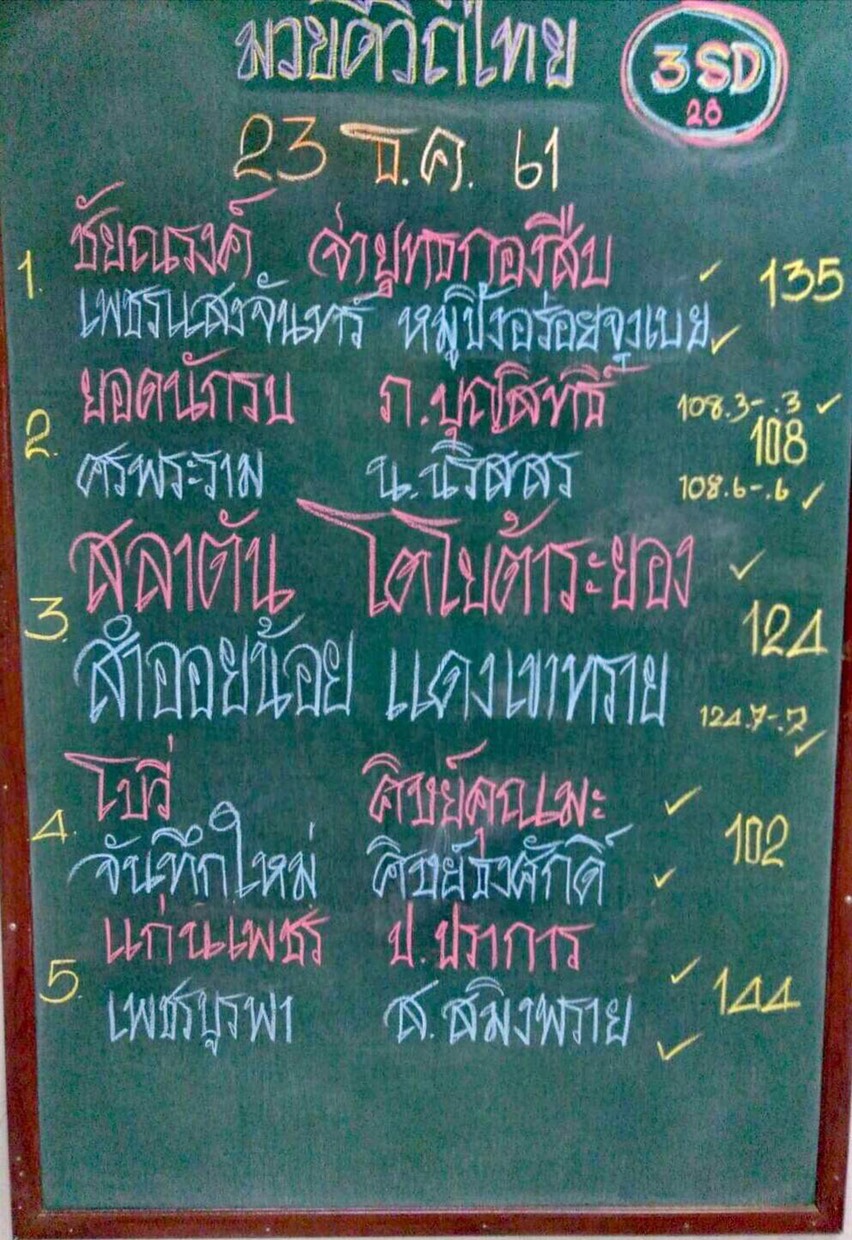 มวยดีวิถีไทย
3SD
28
23 ธ.ค. 61
1. ชัยณรงค์ จ่ายุทธกองสืบ ✓ 135
เพชรแสงจันทร์ หมูปิ้งอร่อยจุงเบย ✓
2. ยอดนักรบ ภ.บุญสิทธิ์ 108.3-.3 ✓
108
ศรพระราม น.นิรสสร 108.6-.6 ✓
3. สลาตัน โตโยต้าระยอง ✓
124
สำออยน้อย แดงเขาทราย 124.7-.7 ✓
4. โบวี่ ศิษย์คุณเมะ ✓ 102
จันทึกใหม่ ศิษย์ธงศักดิ์ ✓
5. แก่นเพชร ป.ปราการ ✓ 144
เพชรบูรพา ส.สมิงพราย ✓